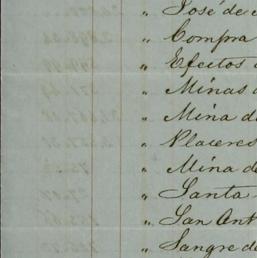 " José de
" Compra
" Efectos
" Minas d
" Mina de
" Placeres
" Mina de
" Santa
" San Ant
" Sangre de